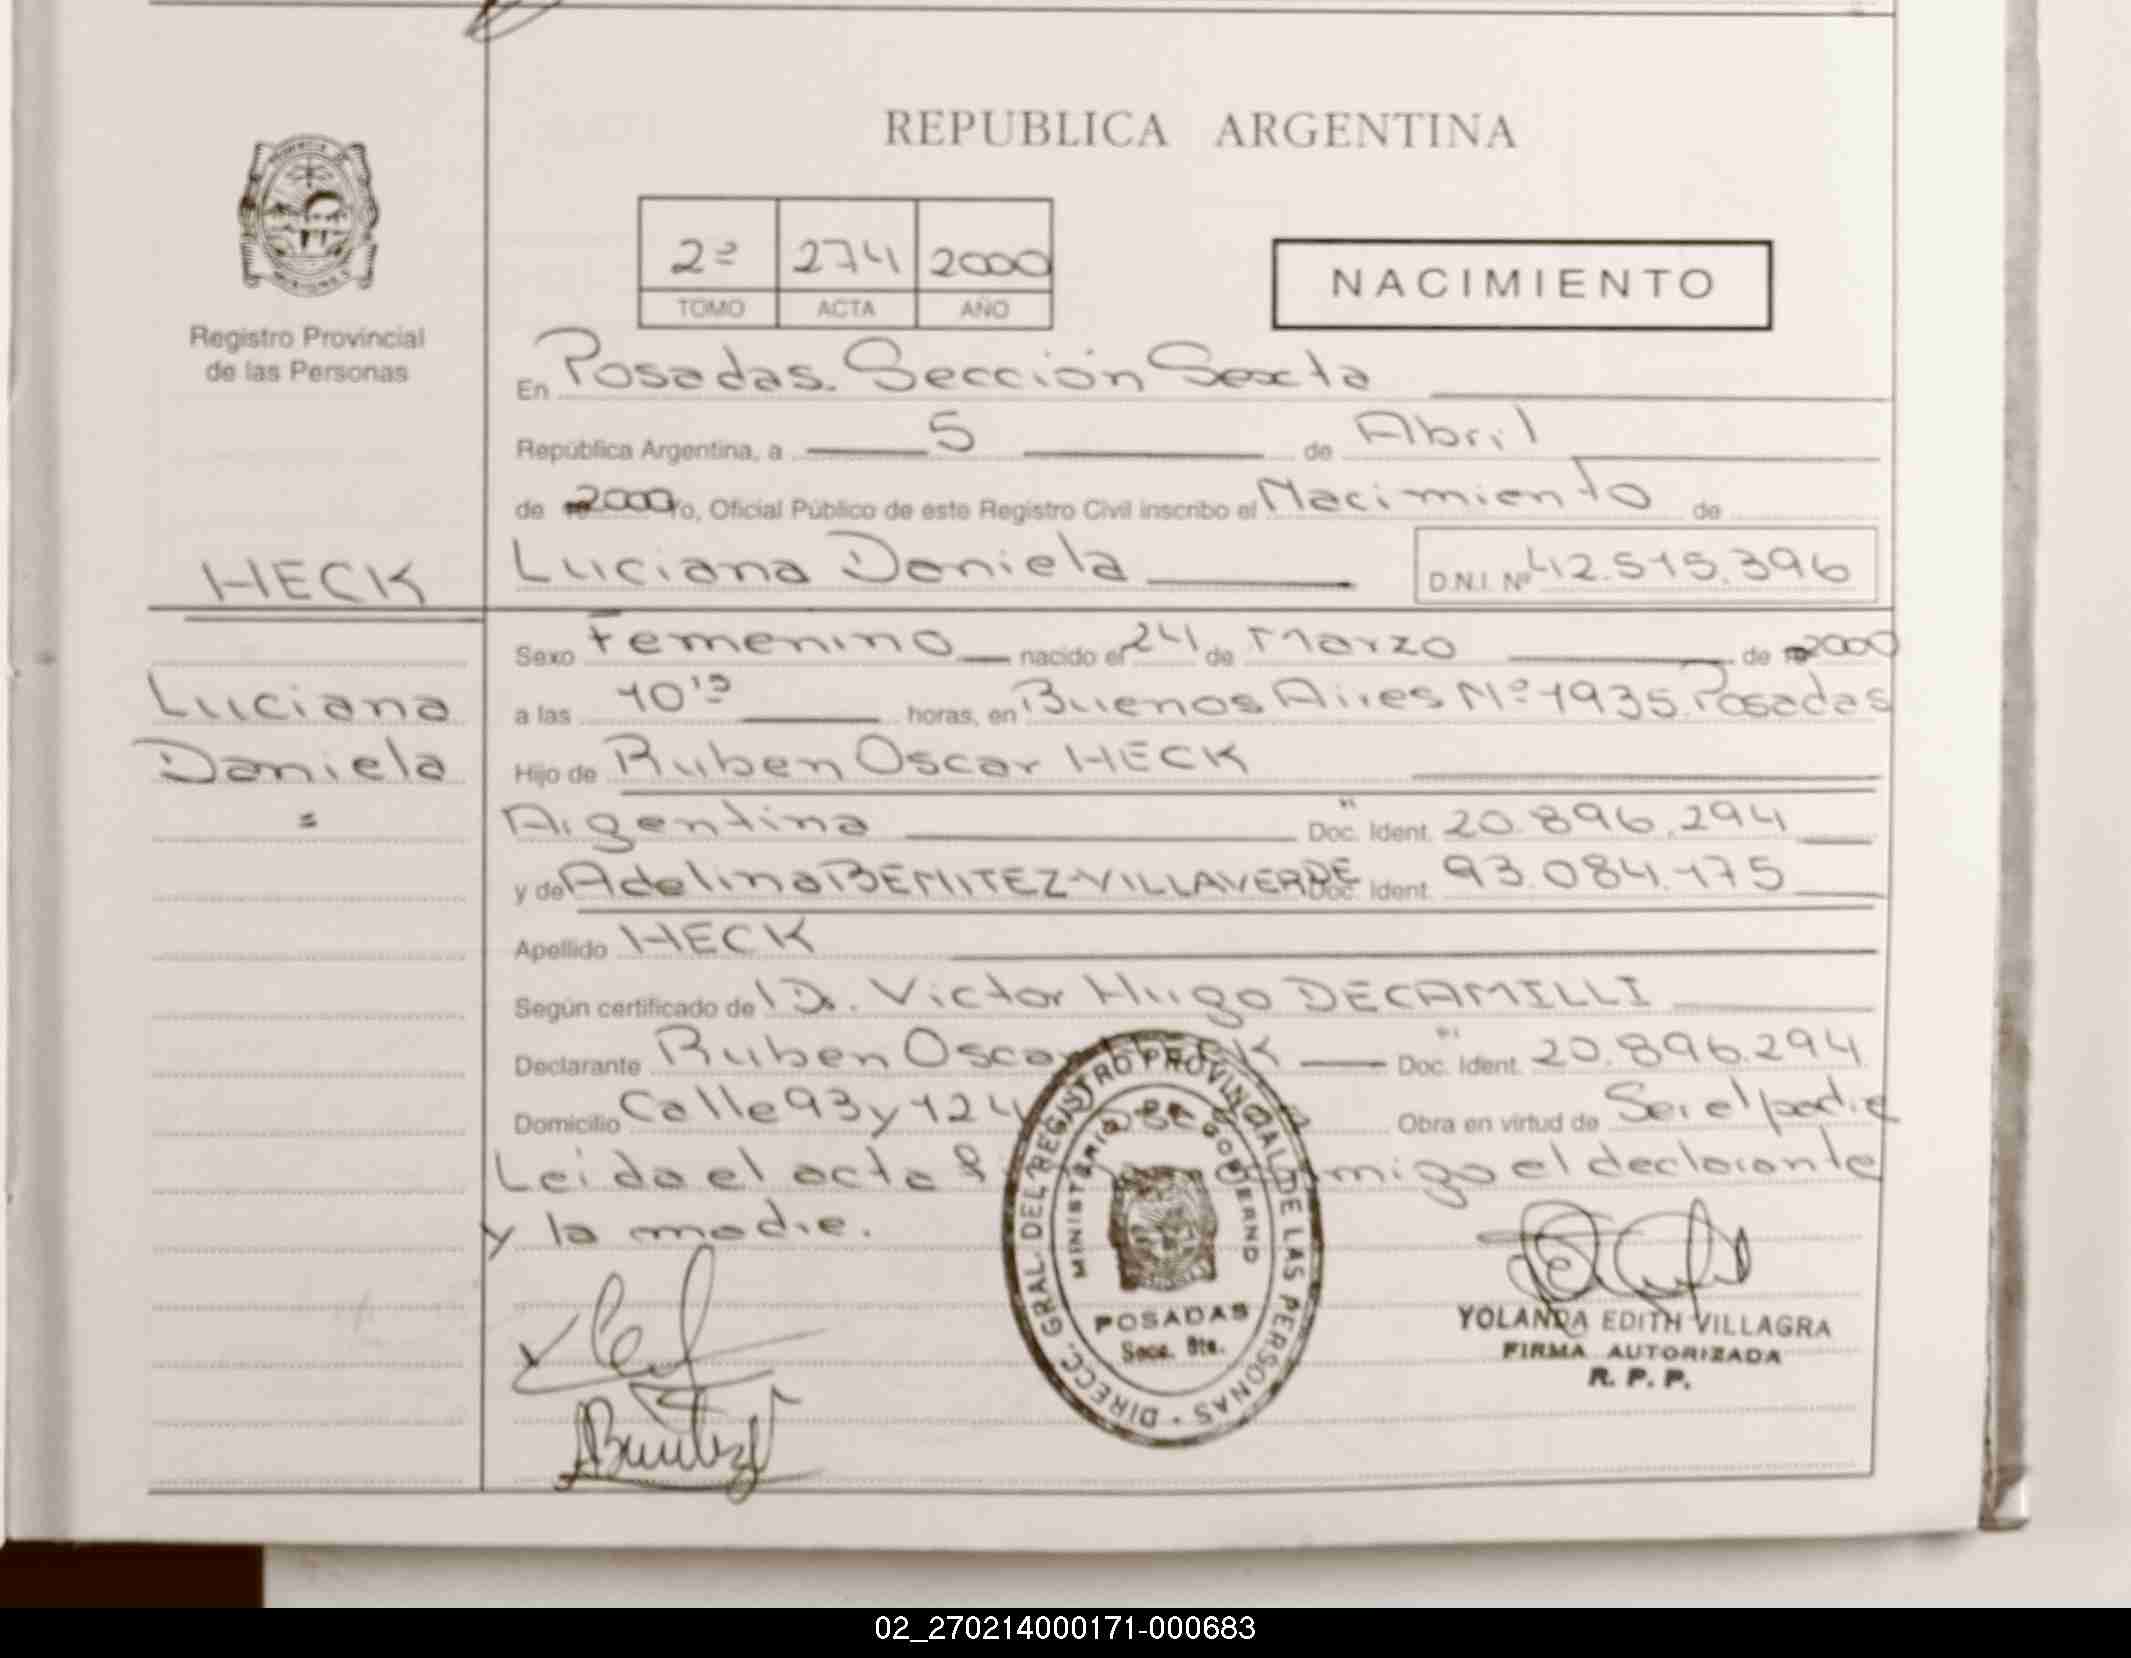 REPUBLICA ARGENTINA
2º 274 2000
TOMO ACTA AÑO
NACIMIENTO
Registro Provincial
de las Personas
En Posadas. Sección Sexta
República Argentina, a 5 de Abril
de 2000 Yo, Oficial Público de este Registro Civil inscribo el Nacimiento de
HECK
Luciana Daniela D.N.I. Nº 42.515.396
Sexo Femenino nacido el 24 de Marzo de 2000
Luciana
Daniela
=
a las 10'15 horas, en Buenos Aires Nº 1935. Posadas
Hijo de Ruben Oscar HECK
Argentina Doc. Ident. 20.896.294
y de Adelina BENITEZ-VILLAVERDE Doc. Ident. 93.084.175
Apellido HECK
Según certificado de Dr. Victor Hugo DECAMILLI
Declarante Ruben Oscar HECK Doc. Ident. 20.896.294
Domicilio Calle 93 y 124 Obra en virtud de Ser el padre
Leida el acta migo el declarante
y la madre.
DIRECC. GRAL. DEL REGISTRO PROVINCIAL DE LAS PERSONAS
MINISTERIO DE GOBIERNO
POSADAS
Secc. 6ta.
YOLANDA EDITH VILLAGRA
FIRMA AUTORIZADA
R. P. P.
02_270214000171-000683